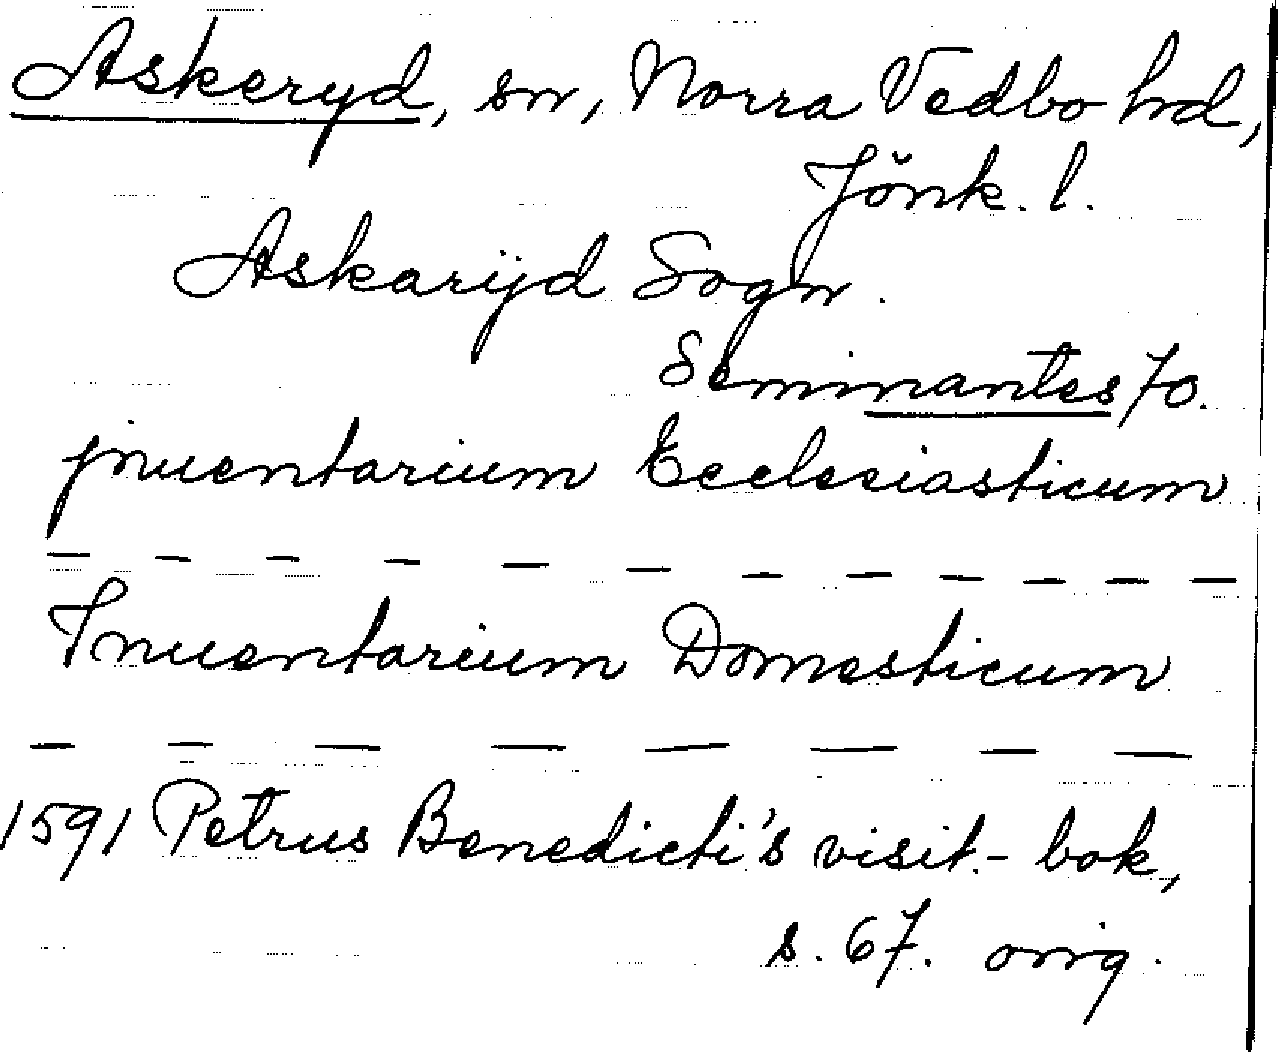 Askeryd, sn, Norra Vedbo hd,
Jönk. l.
Askarijd Sogn.
Seminantes 70.
jnuentarium Ecclesiasticum
— — — — — — — — — — — —
Inuentarium Domesticum
— — — — — — — —
1591 Petrus Benedicti's visit.-bok,
s. 67. orig.